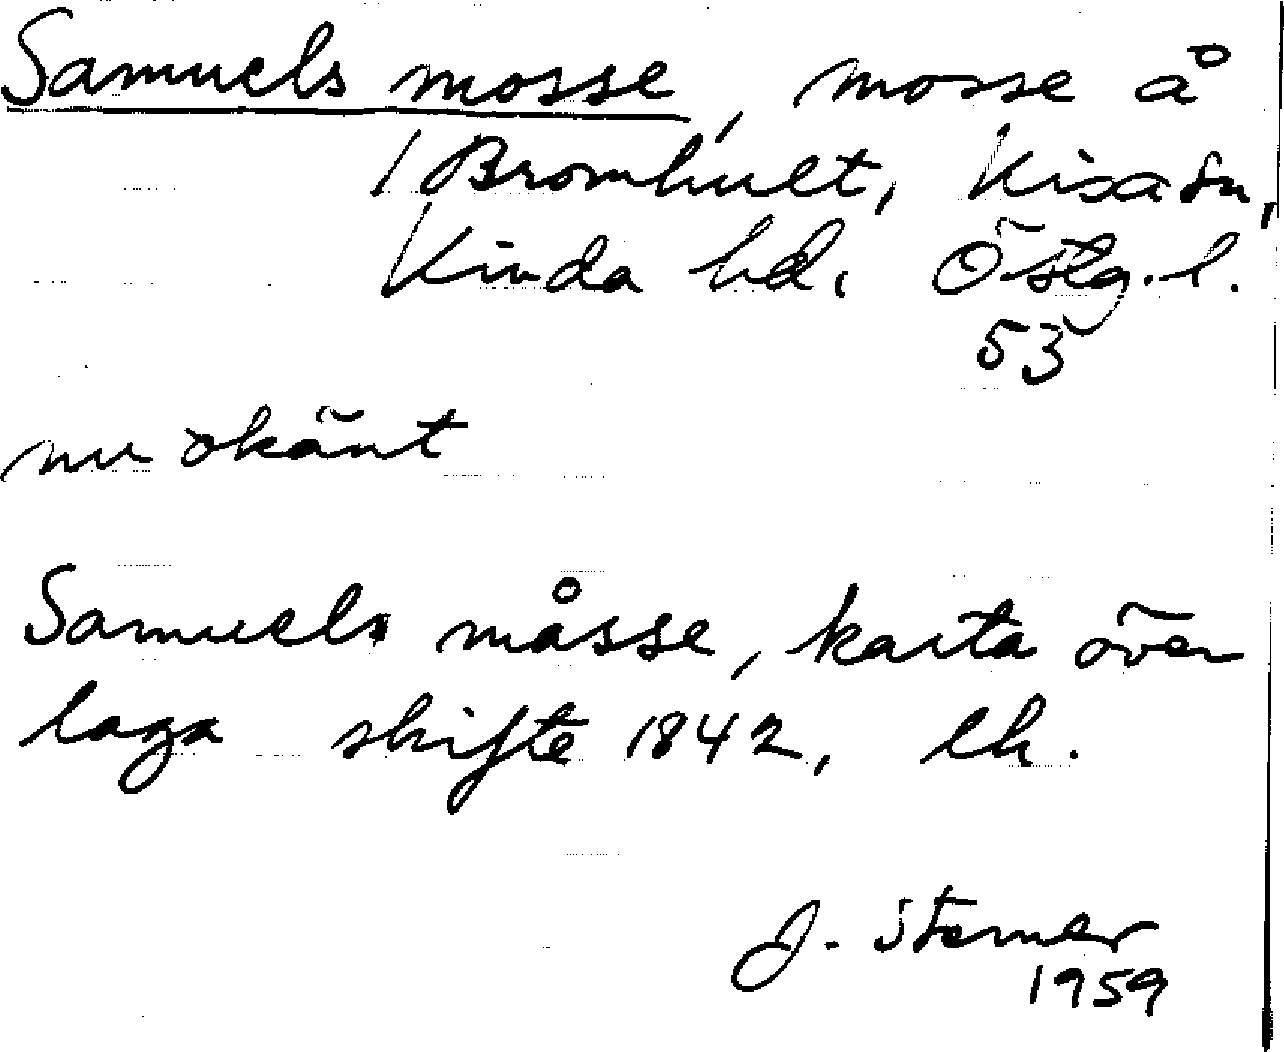 Samuels mosse, mosse å
Bromhult, Kisa sn,
Kinda hd, Östg. l.
53
nu okänt
Samuels måsse, karta över
laga skifte 1842, lk.
J. Sterner
1959